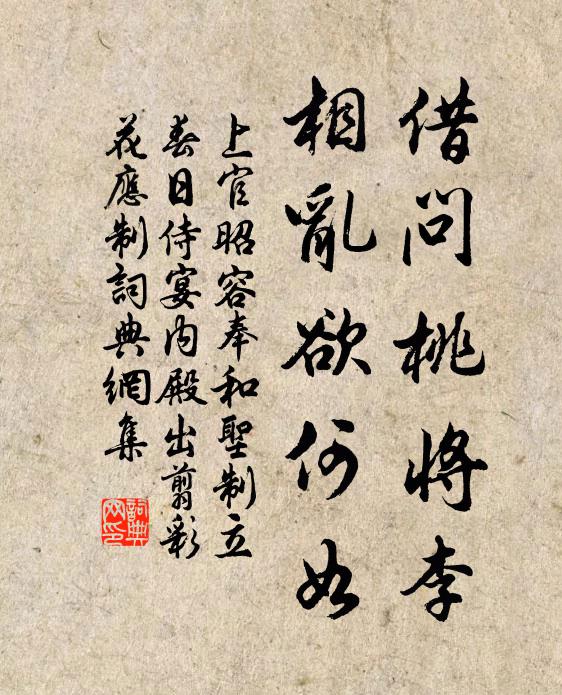 借問桃將李
相亂欲何如
上官昭容奉和聖制立
春日侍宴内殿出翦彩
花應制詞典網集
詞典
网印